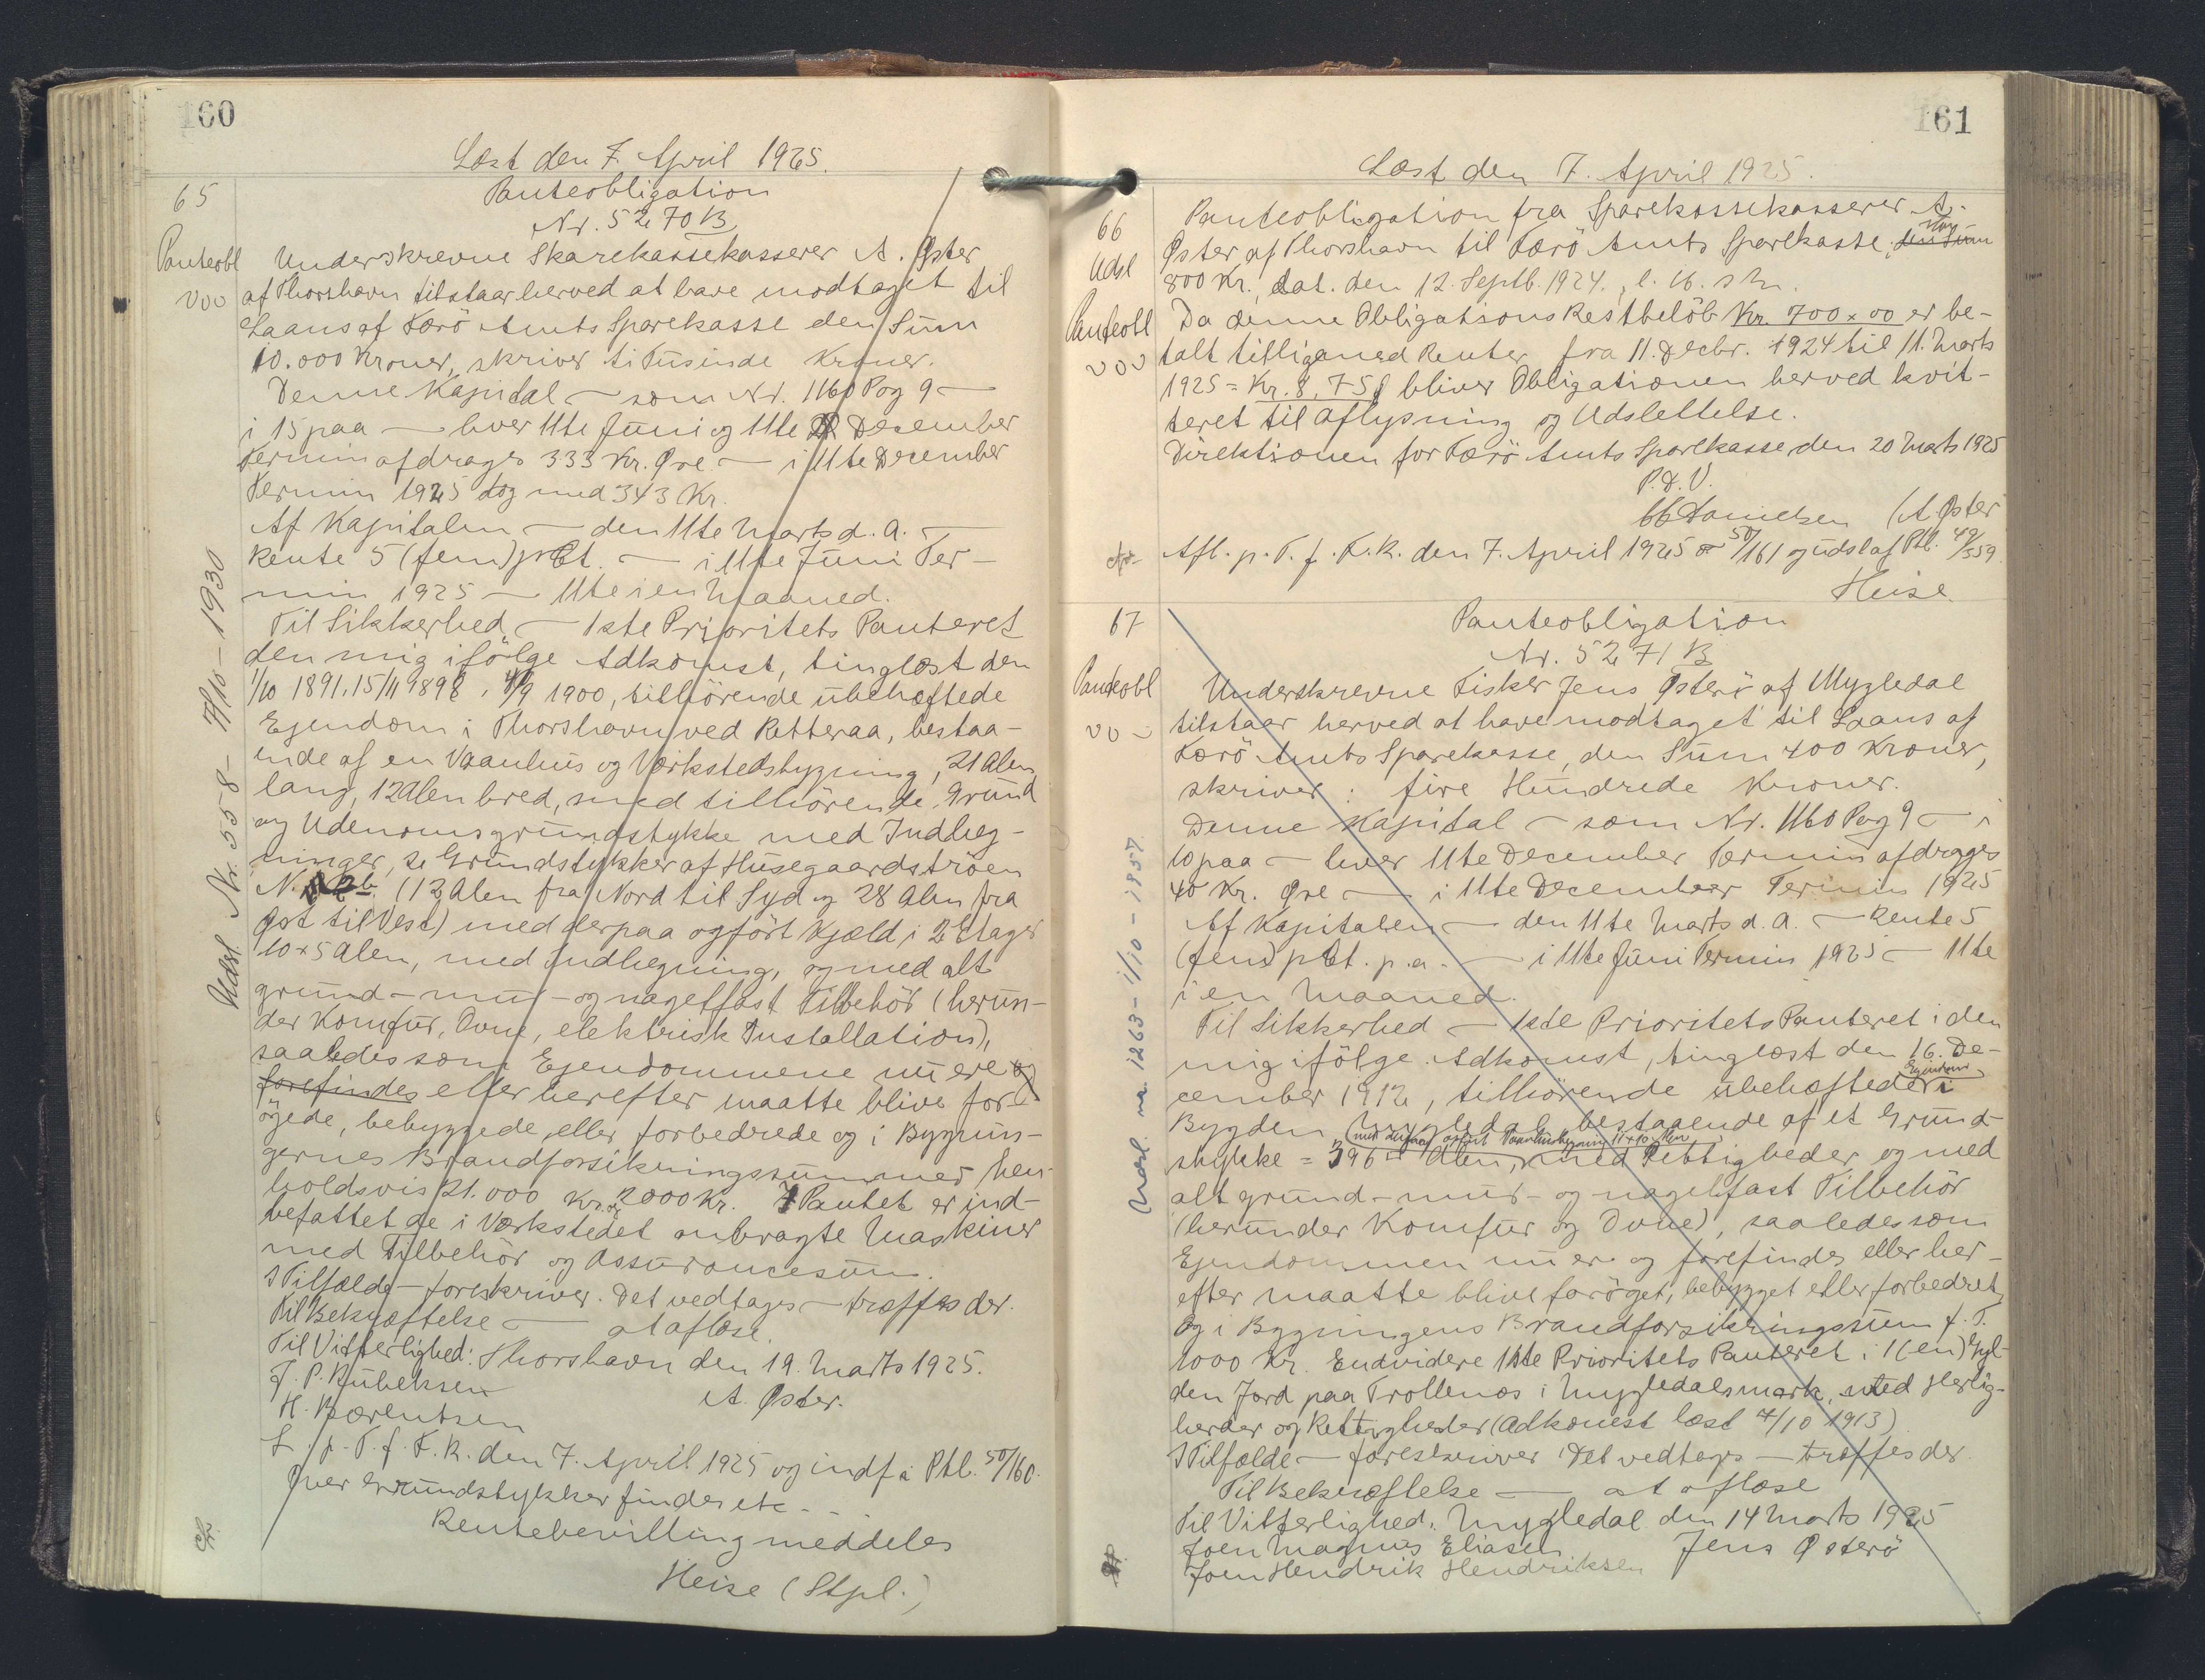 160
Læst den 7. April 1925.
65
Panteobligation
Nr. 5270 B
Panteobl
Underskrevne Skarekassekasserer A. Øster
af Thorshavn tilstaar herved at have modtaget til
Laans af Færö Amts Sparekasse den Sum
10.000 Kroner, skriver ti Tusinde Kroner.
Denne Kapital — som Nr. 1160 Pag 9 —
i 15 paa — hver 11te Juni og 11te December
Termin afdrages 333 Kr. Øre — i 11te December
Termin 1925 dog med 343 Kr.
Af Kapitalen — den 11te Marts d. A. —
Rente 5 (fem) pCt. — i 11te Juni Ter-
min 1925 — 11te i en Maaned.
Til Sikkerhed — 1ste Prioritets Panteret
den mig ifölge Adkomst, tinglæst den
1/10 1891, 15/11 1898, 4/9 1900, tilhörende ubehæftede
Ejendom i Thorshavn ved Retteraa, bestaa-
ende af en Vaanhus og Værkstedsbygning, 21 Alen
lang, 12 Alen bred, med tilhörende Grund
og Udenomsgrundstykke med Indheg-
ninger, se Grundstykker af Husegaardströen
N. 2b (12 Alen fra Nord til Syd og 28 Alen fra
Øst til Vest) med derpaa opfört Kjæld i 2 Etager
10 x 5 Alen, med Indhegning, og med alt
grund- mur- og nagelfast Tilbehör (herun-
der Komfur, Ovne, elektrisk Installation),
saaledes som Ejendommene nu ere og
forefindes eller herefter maatte blive for-
ögede, bebyggede eller forbedrede og i Bygnin-
gernes Brandforsikringssummer hen-
holdsvis 21.000 Kr. og 2000 Kr. I Pantet er ind-
befattet de i Værkstedet anbragte Maskiner
med Tilbehör og Assurancesum.
I Tilfælde — foreskriver. Det vedtages — træffes der.
Til Bekræftelse — at aflæse.
Til Vitterlighed: Thorshavn den 19. Marts 1925.
J. P. Rubeksen
A. Øster.
H. Bærentsen
L. p. T. f. F. R. den 7. April 1925 og indf i Ptb. 50/160.
Over Grundstykker findes etc -
Rentebevilling meddeles
Heise (Stpl.)
Udsl. Nr. 558 - 7/10 - 1930
161
Læst den 7. April 1925.
66
Udsl
Panteobl
Panteobligation fra Sparekassekasserer A.
Øster af Thorshavn til Færö Amts Sparekasse, stor den Sum
800 Kr., dat. den 12. Septb. 1924.
Da denne Obligations Restbelöb Kr. 700 x 00 er be-
talt tilligemed Renter fra 11. Decbr. 1924 til 11. Marts
1925 = Kr. 8,75, bliver Obligationen herved kvit-
teret til Aflysning og Udslettelse.
Direktionen for Færö Amts Sparekasse, den 20 Marts 1925
P. D. V.
Danielsen / A. Øster
Afl. p. T. f. F. R. den 7. April 1925 50/161 og udsl af Ptb. 49/559.
Heise
67
Panteobligation
Nr. 5271 B
Panteobl
Underskrevne Fisker Jens Østerö af Mygledal
tilstaar herved at have modtaget til Laans af
Færö Amts Sparekasse, den Sum 400 Kroner,
skriver: fire Hundrede Kroner.
Denne Kapital — som Nr. 1160 Pag 9 — i
10 paa — hver 11te December Termin afdrages
40 Kr. Øre — i 11te December Termin 1925
Af Kapitalen — den 11te Marts d. A. — Rente 5
(fem) pCt. p. a. — i 11te Juni Termin 1925 — 11te
i en Maaned.
Til Sikkerhed — 1ste Prioritets Panteret i den
mig ifölge Adkomst, tinglæst den 16. De-
cember 1912, tilhörende ubehæftede Ejendom i
Bygden Mygledal bestaaende af et Grund-
stykke = 396 □ Alen, med derpaa opfört Vaanhusbygning 11 x 10 Alen med Rettigheder og med
alt grund- mur- og nagelfast Tilbehör
(herunder Komfur og Ovne), saaledes som
Ejendommen nu er og forefindes eller her-
efter maatte blive foröget, bebygget eller forbedret,
og i Bygningens Brandforsikringssum f. T.
1000 Kr. Endvidere 1ste Prioritets Panteret i 1 (en) Gyl-
den Jord paa Trollenæs i Mygledalsmark, med Herlig-
heder og Rettigheder (Adkomst læst 4/10 1913)
I Tilfælde — foreskriver Det vedtages — træffes der
Til Bekræftelse — at aflæse
Til Vitterlighed. Mygledal den 14 Marts 1925
Joen Magnus Eliasen
Jens Østerö
Joen Hendrik Hendriksen
Udsl. nr. 1263 - 1/10 - 1957